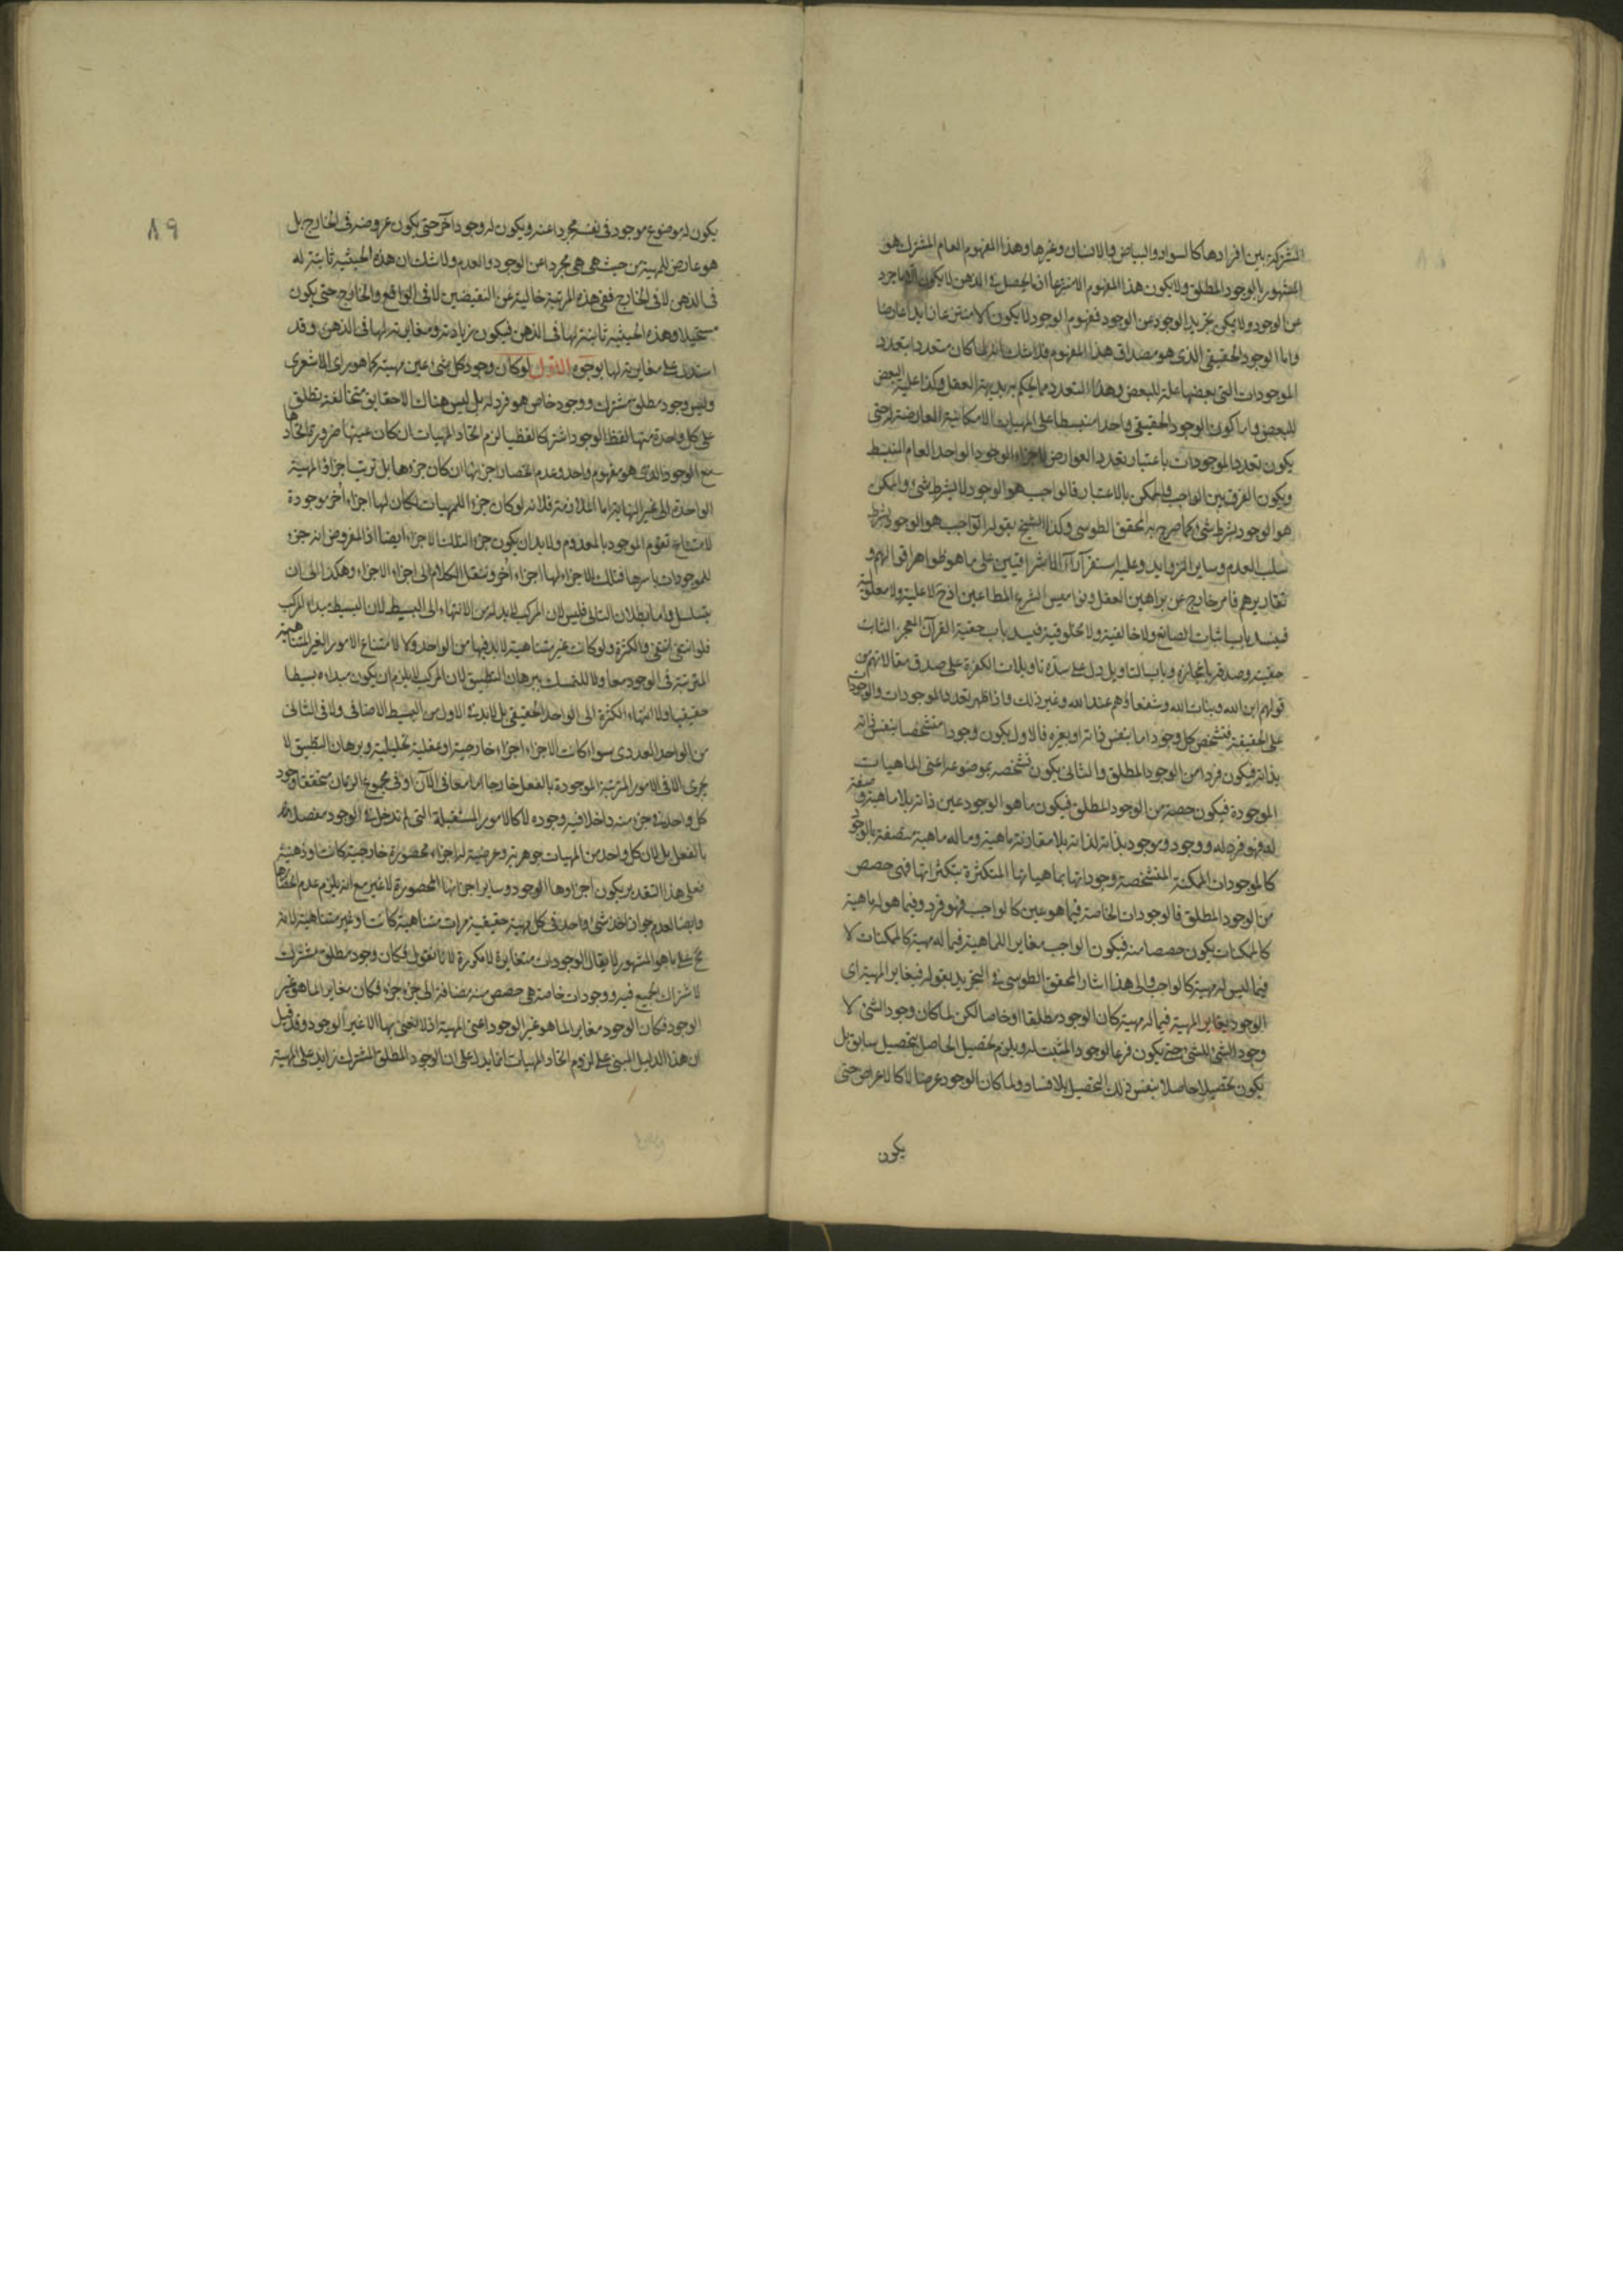 المشتركة بين افرادها كالسواد والبياض والانسان وغيرها وهذا المفهوم العام المشترك هو
المشهور بالوجود المطلق ولا يكون هذا المفهوم الانتزاعى اذا يحصل فى الذهن لا يكون
من الوجود ولا يمكن تجريد الوجود عن الوجود فمفهوم الوجود لا يكون
واما الوجود الحقيقى الذى هو مصداق هذا المفهوم فلا شك انه لما كان متعددا بتعدد
الموجودات التى بعضها علة للبعض وهذا التعدد مما يحكم به بديهة العقل وكذا علية البعض
للبعض واما كون الوجود الحقيقى واحدا منبسطا على المهيات الامكانية العارضة له حتى
يكون تعدد الموجودات باعتبار تعدد العوارض لاجزاء الموجود الواحد العام المنبسط
ويكون الفرق بين الواجب والممكن بالاعتبار فالواجب هو الوجود لا بشرط شئ والممكن
هو الوجود بشرط شئ كما صرح به المحقق الطوسى وكذا الشيخ بقوله الواجب هو الوجود بشرط
سلب العدم وساير الزوايد وعليه استقر آراء الاشراقيين على ما هو ظواهر اقوالهم و
تقاريرهم فامر خارج عن براهين العقل ونواميس الشرع المطاعين اذ ح لا علية ولا معلولية
فيسد باب اثبات الصانع ولا خالقية ولا مخلوقية فيسد باب حقية القرآن المعجز الثابت
حقيته وصدقه باعجازه وباب التاويل دل على سده تاويلات الكفرة على صدق مقالاتهم من
قولهم ابن الله وبنات الله وشفعاؤهم عند الله وغير ذلك واذا ظهر تعدد الموجودات والوجودات
على الحقيقة فتشخص كل وجود اما بنفس ذاته او بغيره فالاول يكون وجودا متشخصا بنفس ذاته
بذاته فيكون فردا من الوجود المطلق والثانى يكون تشخصه بموضوعه اعنى الماهيات
الموجودة فيكون حصة من الوجود المطلق فيكون ما هو الوجود عين ذاته بلا ماهية وصفة
له فهو فرد له ووجود وموجود بذاته لذاته بلا مقارنة ماهية وما له ماهية متصفة بالوجود
كالموجودات الممكنة المتشخصة وجوداتها بماهياتها المتكثرة بتكثراتها فهى حصص
من الوجود المطلق فالوجودات الخاصة فيما هو عين كالواجب فهو فرد وفيما هو له ماهية
كالممكنات يكون حصصا منه فيكون الواجب مغايرا للماهية فيما له مهية كالممكنات لا
فيما ليس له مهية كالواجب والى هذا اشار المحقق الطوسى فى التجريد بقوله فيغاير المهية اى
الوجود يغاير المهية فيما له مهية كان الوجود مطلقا او خاصا لكن لما كان وجود الشئ لا
وجود الشئ للشئ حتى يكون فرعا لوجود المثبت له ويلزم تحصيل الحاصل بتحصيل سابق بل
يكون تحصيلا حاصلا بنفس ذلك التحصيل بلا فساد ولما كان الوجود عرضا لا كالاعراض حتى
يكون
٨٩
يكون له موضوع موجود فى نفسه مجردا عنه ويكون له وجود آخر حتى يكون عروضه فى الخارج بل
هو عارض للمهية من حيث هى هى مجردا عن الوجود والعدم ولا شك ان هذه الحيثية ثابتة له
فى الذهن لا فى الخارج ففى هذه المرتبة خالية عن النقيضين لا فى الواقع والخارج حتى يكون
مستحيلا وهذه الحيثية ثابتة لها فى الذهن فيكون زيادته ومغايرته لها فى الذهن وقد
استدل على مغايرته لها بوجوه لو كان وجود كل شئ عين مهيته كما هو راى الاشعرى
وليس وجود مطلق مشترك ووجود خاص هو فرد له بل ليس هناك الا حقايق متخالفة يطلق
على كل واحدة منها لفظ الوجود اشتراكا لفظيا لزم اتحاد المهيات ان كان عينها ضرورة اتحادها
مع الوجود الذى هو مفهوم واحد وعدم انحصار اجزائها ان كان جزءها بل ترتب اجزاء المهية
الواحدة الى غير النهاية اما الملازمة فلانه لو كان جزء للمهيات لكان لها اجزاء أخر موجودة
لامتناع تقوم الموجود بالمعدوم ولا بد ان يكون جزء لتلك الاجزاء ايضا اذ المفروض انه جزء
للموجودات باسرها فتلك الاجزاء لها اجزاء أخر وننقل الكلام الى اجزاء الاجزاء وهكذا الى ان
يتسلسل واما بطلان التالى فليس لان المركب لا بد له من الانتهاء الى البسيط لان البسيط مبداء المركب
فلو انتفى انتفى والكثرة ولو كانت غير متناهية لا بد فيها من الواحد ولا لامتناع الامور الغير المتناهية
المترتبة فى الوجود معا ولا للتمسك ببرهان التطبيق لان المركب لا يلزم ان يكون مبداءه بسيطا
حقيقيا ولا انتهاء الكثرة الى الواحد الحقيقى بل لا بد فى الاول من البسيط الاضافى ولا فى الثانى
من الواحد العددى سواء كانت الاجزاء اجزاء خارجية او عقلية تحليلية وبرهان التطبيق لا
يجرى الا فى الامور المرتبة الموجودة بالفعل خارجا اما معا فى الآن او فى مجموع الزمان متحققا وجود
كل واحد فى جزء منه داخلا فيه وجوده لا كالامور المستقبلة التى لم تدخل فى الوجود مفصلا
بالفعل بل لان كل واحد من المهيات جوهرية وعرضية لها اجزاء محصورة خارجية كانت او ذهنية
فعلى هذا التقدير يكون اجزاءها الوجود وساير اجزائها المحصورة لا غير مع انه يلزم عدم انحصارها
وايضا لعدم جواز اخذ شئ واحد فى كل مهية حقيقية مرات متناهية كانت او غير متناهية لانه
مح على ما هو المشهور لا يقال الوجودات متغايرة لا مكررة لانا نقول فكان وجود مطلق مشترك
لاشتراك الجميع فيه ووجودات خاصة هى حصص منه مضافة الى جزء جزء فكان مغايرا لما هو غير
الوجود فكان الوجود مغايرا لما هو غير الوجود اعنى المهية اذ لا نعنى بها الا غير الوجود وقد قيل
ان هذا الدليل المبنى على لزوم اتحاد المهيات انما يدل على ان الوجود المطلق المشترك زايد على المهية